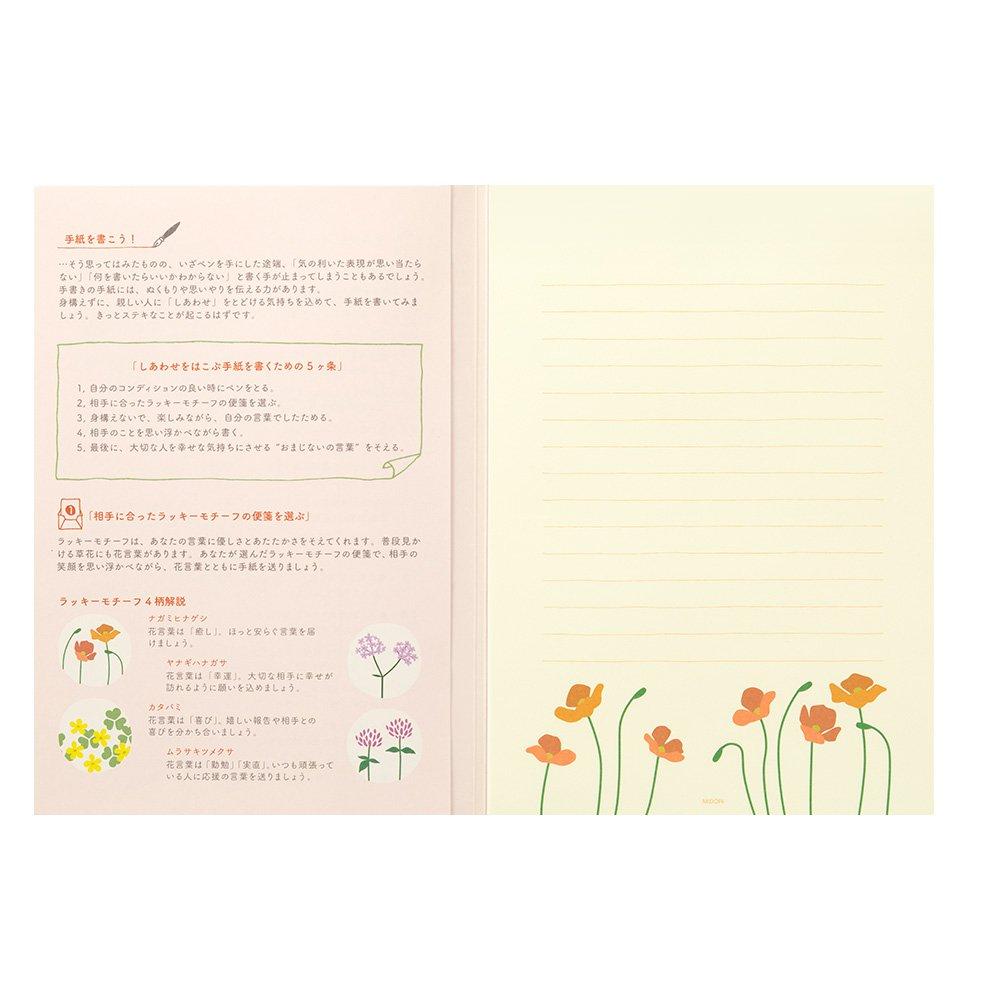 手紙を書こう！
…そう思ってはみたものの、いざペンを手にした途端、「気の利いた表現が思い当たら
ない」「何を書いたらいいかわからない」と書く手が止まってしまうこともあるでしょう。
手書きの手紙には、ぬくもりや思いやりを伝える力があります。
身構えずに、親しい人に「しあわせ」をとどける気持ちを込めて、手紙を書いてみま
しょう。きっとステキなことが起こるはずです。
「しあわせをはこぶ手紙を書くための５ヶ条」
1, 自分のコンディションの良い時にペンをとる。
2, 相手に合ったラッキーモチーフの便箋を選ぶ。
3, 身構えないで、楽しみながら、自分の言葉でしたためる。
4, 相手のことを思い浮かべながら書く。
5, 最後に、大切な人を幸せな気持ちにさせる“おまじないの言葉”をそえる。
1 「相手に合ったラッキーモチーフの便箋を選ぶ」
ラッキーモチーフは、あなたの言葉に優しさとあたたかさをそえてくれます。普段見か
ける草花にも花言葉があります。あなたが選んだラッキーモチーフの便箋で、相手の
笑顔を思い浮かべながら、花言葉とともに手紙を送りましょう。
ラッキーモチーフ４柄解説
ナガミヒナゲシ
花言葉は「癒し」。ほっと安らぐ言葉を届
けましょう。
ヤナギハナガサ
花言葉は「幸運」。大切な相手に幸せが
訪れるように願いを込めましょう。
カタバミ
花言葉は「喜び」。嬉しい報告や相手との
喜びを分かち合いましょう。
ムラサキツメクサ
花言葉は「勤勉」「実直」。いつも頑張って
いる人に応援の言葉を送りましょう。
MIDORI